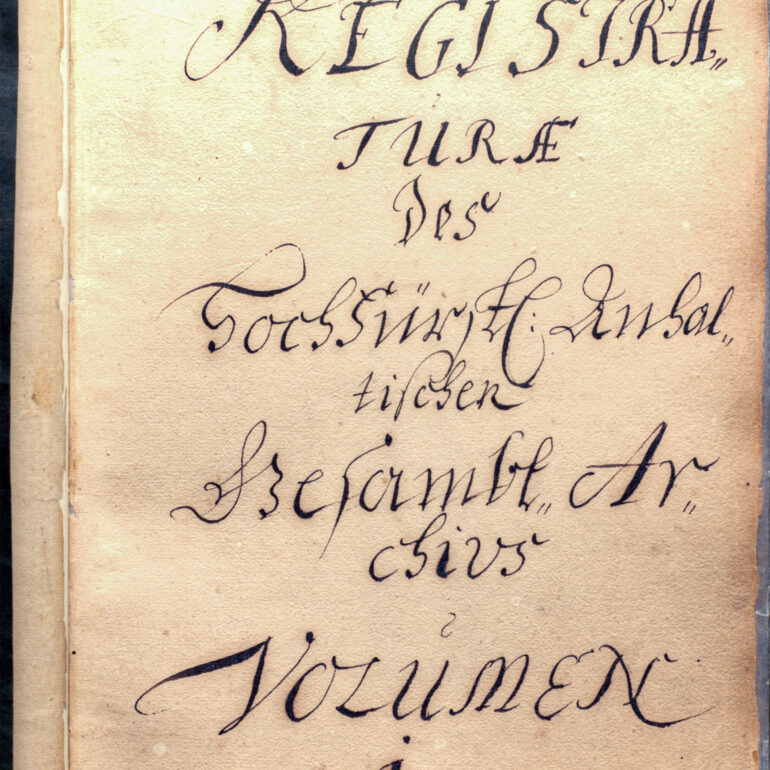 REGISTRA„
TURÆ
des
Hochfürstl: Anhal„
tischen
Gesambt„ Ar„
chivs
VOLUMEN